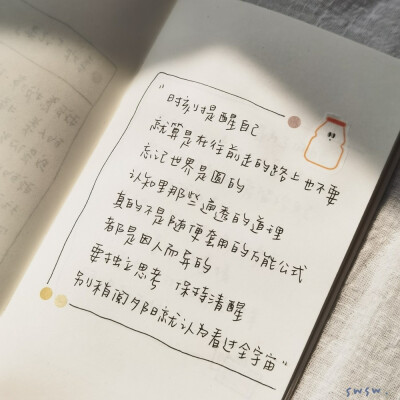 "时刻提醒自己
就算是在往前走的路上也不要
忘记世界是圆的
认知里那些通透的道理
真的不是随便套用的万能公式
都是因人而异的
要独立思考 保持清醒
别稍阅夕阳就认为看过全宇宙"
swsw.